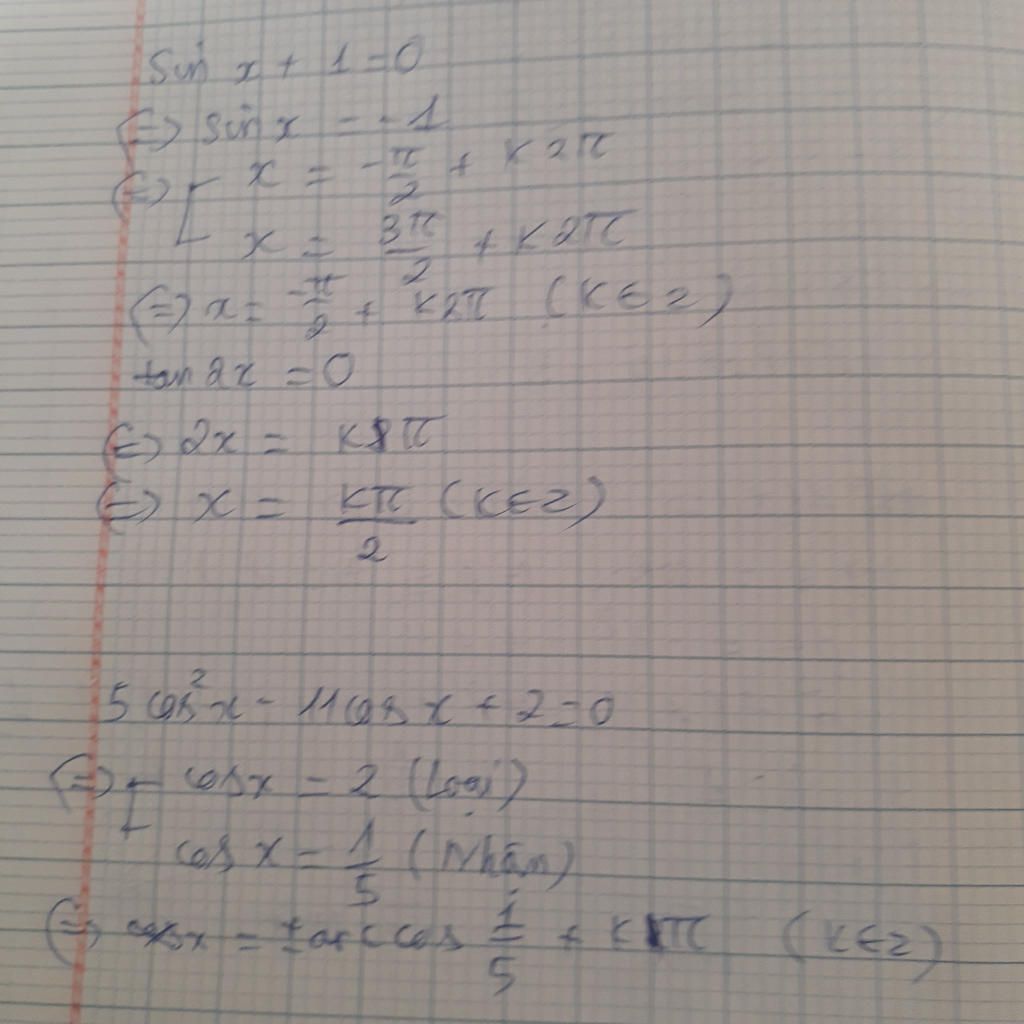 sin x + 1 = 0
(=) sin x = -1
(=) [ x = -π/2 + k2π
x = 3π/2 + k2π
(=) x = -π/2 + k2π (k ∈ Z)
tan 2x = 0
(=) 2x = kπ
(=) x = kπ/2 (k ∈ Z)
5 cos²x - 11 cos x + 2 = 0
(=) [ cos x = 2 (Loại)
cos x = 1/5 (Nhận)
(=) x = ± arccos 1/5 + kπ (k ∈ Z)